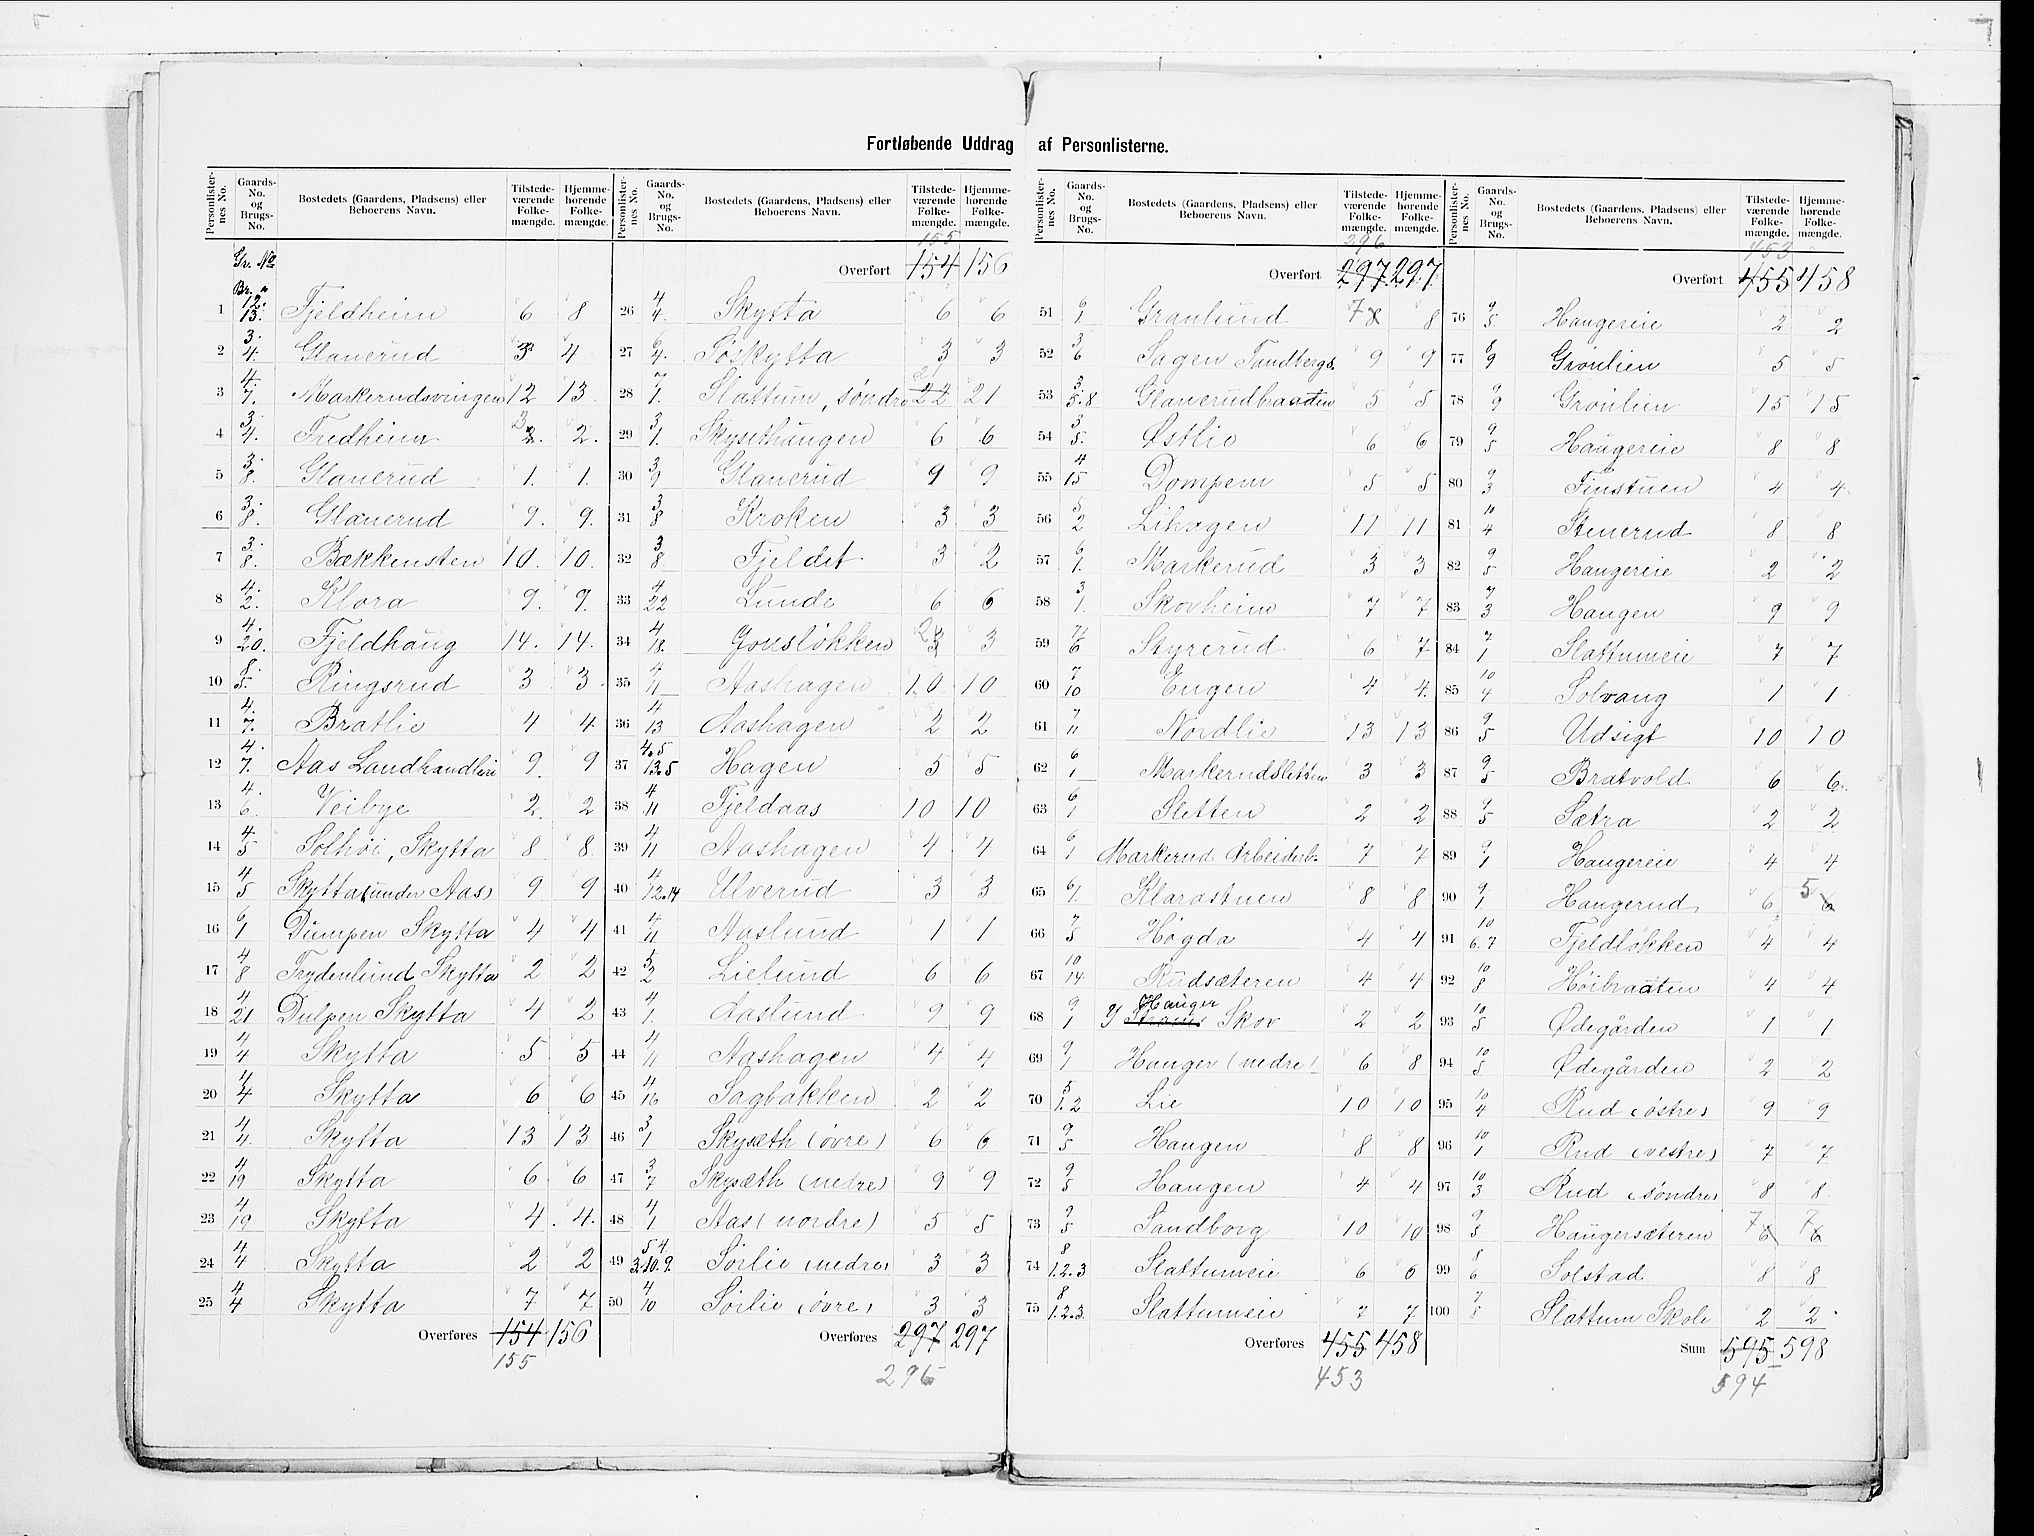 Fortløbende Uddrag af Personlisterne.
Personlisternes No. Gaards-No. og Brugs-No. Bostedets (Gaardens, Pladsens) eller Beboerens Navn. Tilstedeværende Folkemængde. Hjemmehørende Folkemængde.
Gr. No
Br. "
1 12. 13. Fjeldheim 6 8
2 3. 4. Glanerud 3 4
3 4. 7. Markerudsvingen 12 13
4 3. 4. Fredheim 3 2 2.
5 3. 8. Glanerud 1. 1.
6 3. 8. Glanerud 9. 9.
7 3. 8. Bækkensten 10. 10.
8 4. 2. Klora 9. 9.
9 4. 20. Fjeldhaug 14. 14.
10 8. 5. Ringsrud 3 3
11 4. 7. Bratlie 4 4
12 4. 7. Aas Landhandleri 9 9
13 4. 6. Veibye 2 2
14 4 5 Solhöi, Skytta 8 8
15 4 5 Skytta (under Aas) 9 9
16 6 1 Dumpen Skytta 4 4
17 4 8 Frydenlund Skytta 2 2
18 4 21 Dulpen Skytta 4 2
19 4 4 Skytta 5 5
20 4 4 Skytta 6 6
21 4 4. Skytta 13 13
22 4 19 Skytta 6 6
23 4 19 Skytta 4 4
24 4 4 Skytta 2 2
25 4 4 Skytta 7 7
Overføres 154 156
155
Personlisternes No. Gaards-No. og Brugs-No. Bostedets (Gaardens, Pladsens) eller Beboerens Navn. Tilstedeværende Folkemængde. Hjemmehørende Folkemængde.
155
Overført 154 156
26 4 4. Skytta 6 6
27 6 4. Söskytta 3 3
28 7 1. Slattum, söndre 22 21
29 3 1. Skysethaugen 6 6
30 3 9 Glanerud 9 9
31 3 8 Kroken 3 3
32 3 8. Fjeldet 3 2
33 4 22 Lunde 6 6
34 4 18. Gonsløkken 2 3 3
35 4 11 Aashagen 10 10
36 4 13 Aashagen 2 2
37 4.5 13.5 Hagen 5 5
38 4 11 Fjeldaas 10 10
39 4 11 Aashagen 4 4
40 4 12.14 Ulverud 3 3
41 4 11 Aaslund 1 1
42 5 2 Lielund 6 6
43 4 1. Aaslund 9 9
44 4 11 Aashagen 4 4
45 4 16 Sagbakken 2 2
46 3 1 Skysæth (övre) 6 6
47 3 7 Skysæth (nedre) 9 9
48 4 1 Aas (nordre) 5 5
49 5 4. 3. 10. 9. Sörlie (nedre) 3 3
50 4 10 Sörlie (övre) 3 3
Overføres 297 297
296
Personlisternes No. Gaards-No. og Brugs-No. Bostedets (Gaardens, Pladsens) eller Beboerens Navn. Tilstedeværende Folkemængde. Hjemmehørende Folkemængde.
296
Overført 297 297
51 6 1 Granlund 7 8 8
52 3 6 Sagen Tandbergs. 9 9
53 3 5.8 Glanerudbraaten 5 5
54 3 5. Østlie 6 6
55 4 15 Dompem 5 5
56 5 2 Lihagen 11 11
57 6 1. Markerud 3 3
58 3 1. Skovheim 7 7
59 11 6 Styrerud 6 7
60 7 10 Engen 4 4
61 7 11 Nordlie 13 13
62 6 1 Markerudsletten 3 3
63 6 1 Sletten 2 2
64 6 1 Markerud Arbeiderb. 7 7
65 6 1. Klarastuen 8 8
66 7 5 Høgda 4 4
67 10 14 Rudsæteren 4 4
68 9 1 Hauger Skov 2 2
69 9 1 Hauger (nedre) 6 8
70 5 1.2 Lie 10 10
71 9 5 Haugen 8 8
72 9 5 Haugen 4 4
73 9 5 Sandborg 10 10
74 8 1.2.3 Slattumeie 6 6
75 8 1.2.3. Slattumeie 7 7
Overføres 455 458
453
Personlisternes No. Gaards-No. og Brugs-No. Bostedets (Gaardens, Pladsens) eller Beboerens Navn. Tilstedeværende Folkemængde. Hjemmehørende Folkemængde.
453
Overført 455 458
76 9 5 Haugereie 2 2
77 8 9 Grönlien 5 5
78 9 9 Grönlien 15 15
79 9 5 Haugereie 8 8
80 9 3 Finstuen 4 4
81 10 4 Stenerud 8 8
82 9 5 Haugereie 2 2
83 7 3 Haugen 9 9
84 7 1 Slattumeie 7 7
85 10 4 Solvang 1 1
86 9 5 Udsigt 10 10
87 9 5 Bratvold 6 6
88 9 5 Sætra 2 2
89 9 1 Haugereie 4 4
90 9 1. Haugerud 6 5 6
91 10 6.7 Fjeldløkken 4 4
92 10 8 Höibraaten 4 4
93 10 5 Ødegården 1 1
94 10 5 Ødegården 2 2
95 10 4 Rud (østre) 9 9
96 10 1 Rud (vestre) 7 7
97 10 3 Rud (søndre) 8 8
98 9 5 Haugersæteren 7 6 7 6
99 8 6 Solstad 8 8
100 7 8 Slattum Skole 2 2
Sum 595 598
594